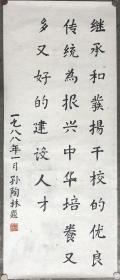 继承和发揚干校的优良
传统為振兴中华培養又
多又好的建设人才
一九八八年一月孙陶林题